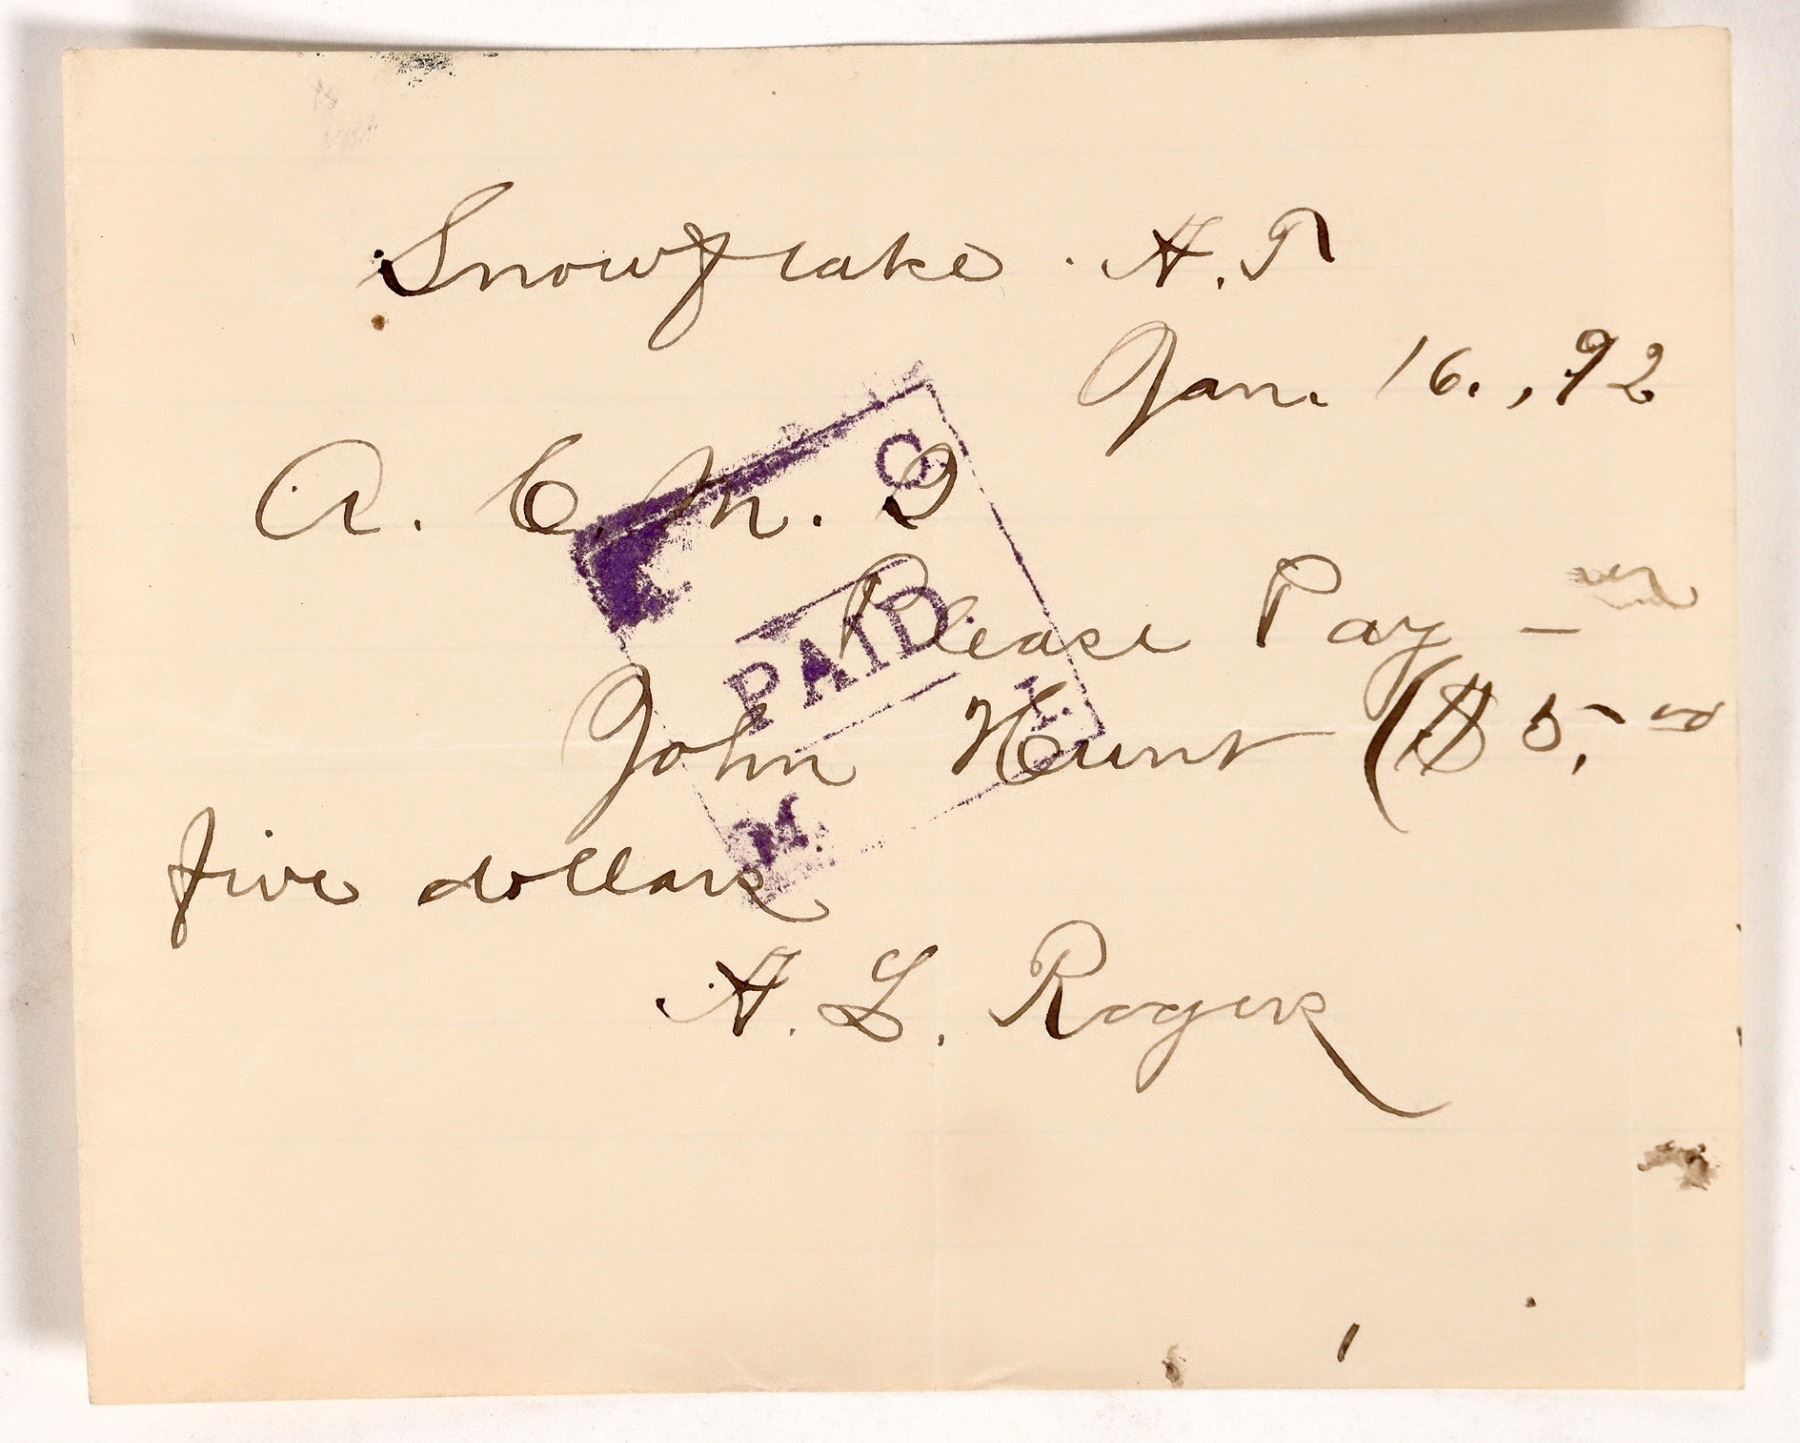 Snowflake. A. T
Jan. 16., 92
A. C. M. I
Please Pay —
John Hunt ($5,00
five dollars
A. L. Rogers
A. C.
PAID
M. I.